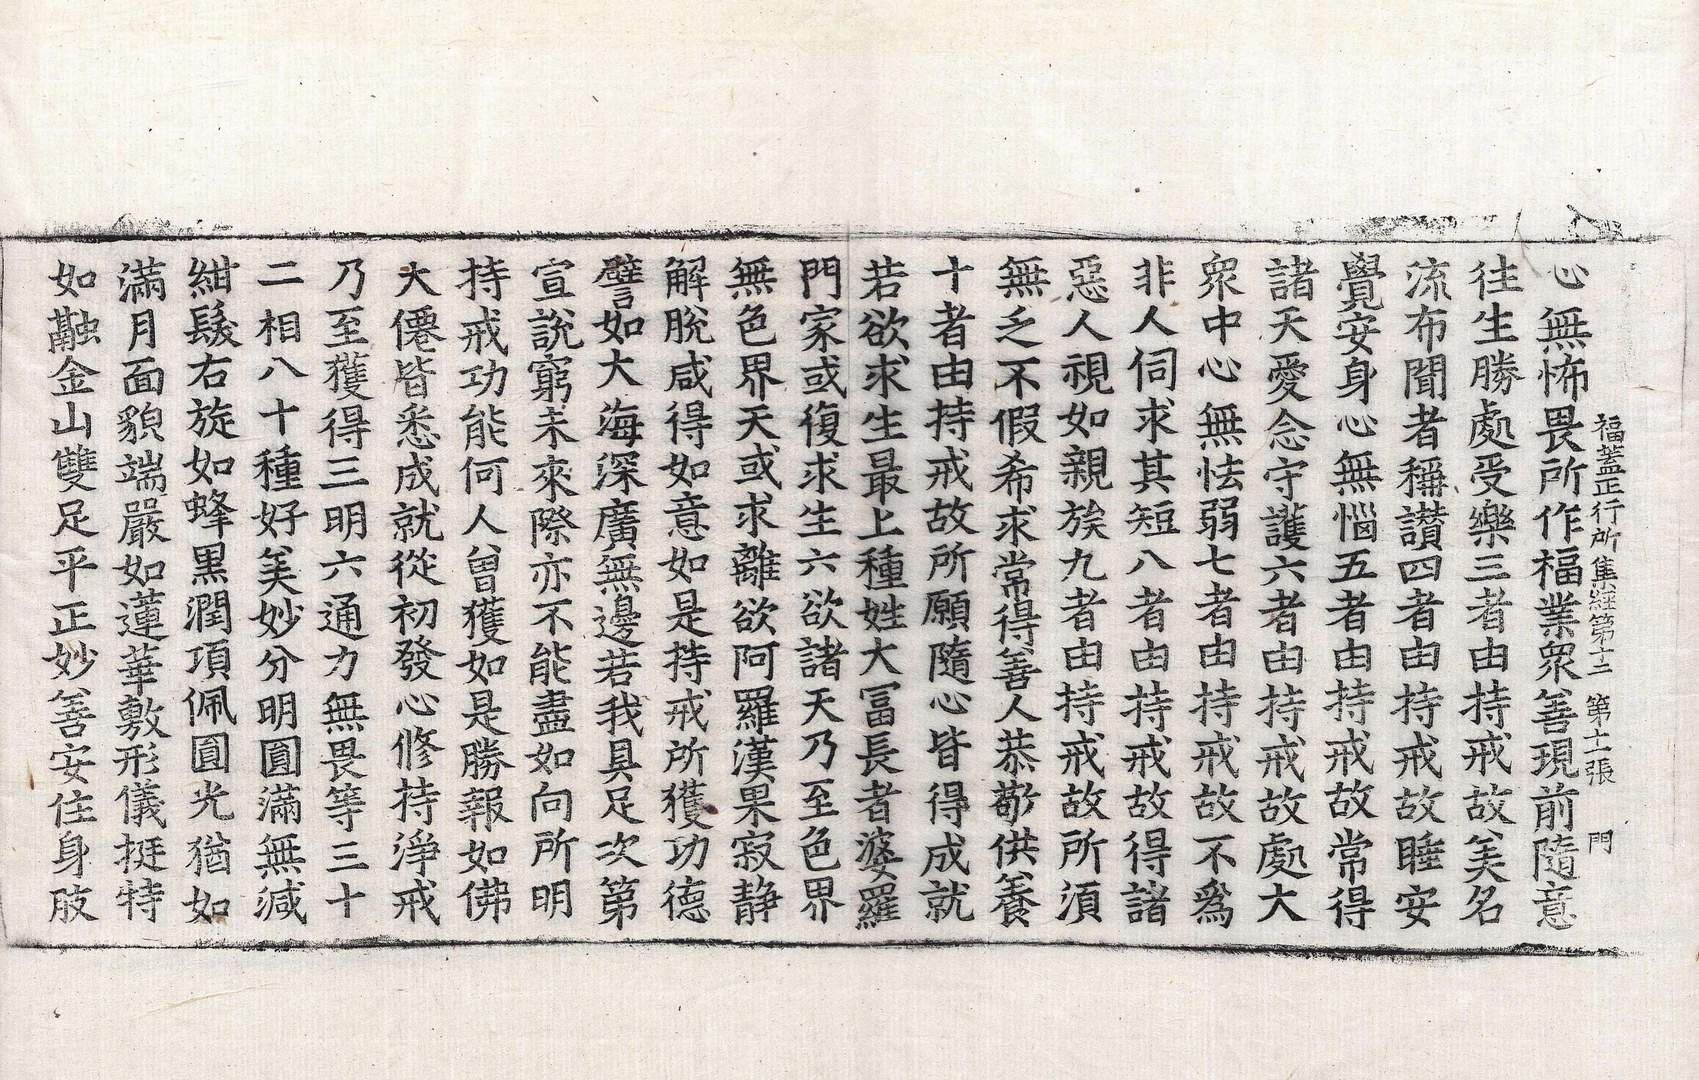 福蓋正行所集經第十二 第十二張 門
心無怖畏所作福業衆善現前隨意
往生勝處受樂三者由持戒故美名
流布聞者稱讃四者由持戒故睡安
覺安身心無惱五者由持戒故常得
諸天愛念守護六者由持戒故處大
衆中心無怯弱七者由持戒故不爲
非人伺求其短八者由持戒故得諸
惡人視如親族九者由持戒故所須
無乏不假希求常得善人恭敬供養
十者由持戒故所願隨心皆得成就
若欲求生最上種姓大冨長者婆羅
門家或復求生六欲諸天乃至色界
無色界天或求離欲阿羅漢果寂静
解脫咸得如意如是持戒所獲功德
譬如大海深廣無邊若我具足次第
宣說窮未來際亦不能盡如向所明
持戒功能何人曾獲如是勝報如佛
大僊皆悉成就從初發心修持淨戒
乃至獲得三明六通力無畏等三十
二相八十種好美妙分明圓滿無減
紺髮右旋如蜂黒潤項佩圓光猶如
滿月面貌端嚴如蓮華敷形儀挺特
如融金山雙足平正妙善安住身肢